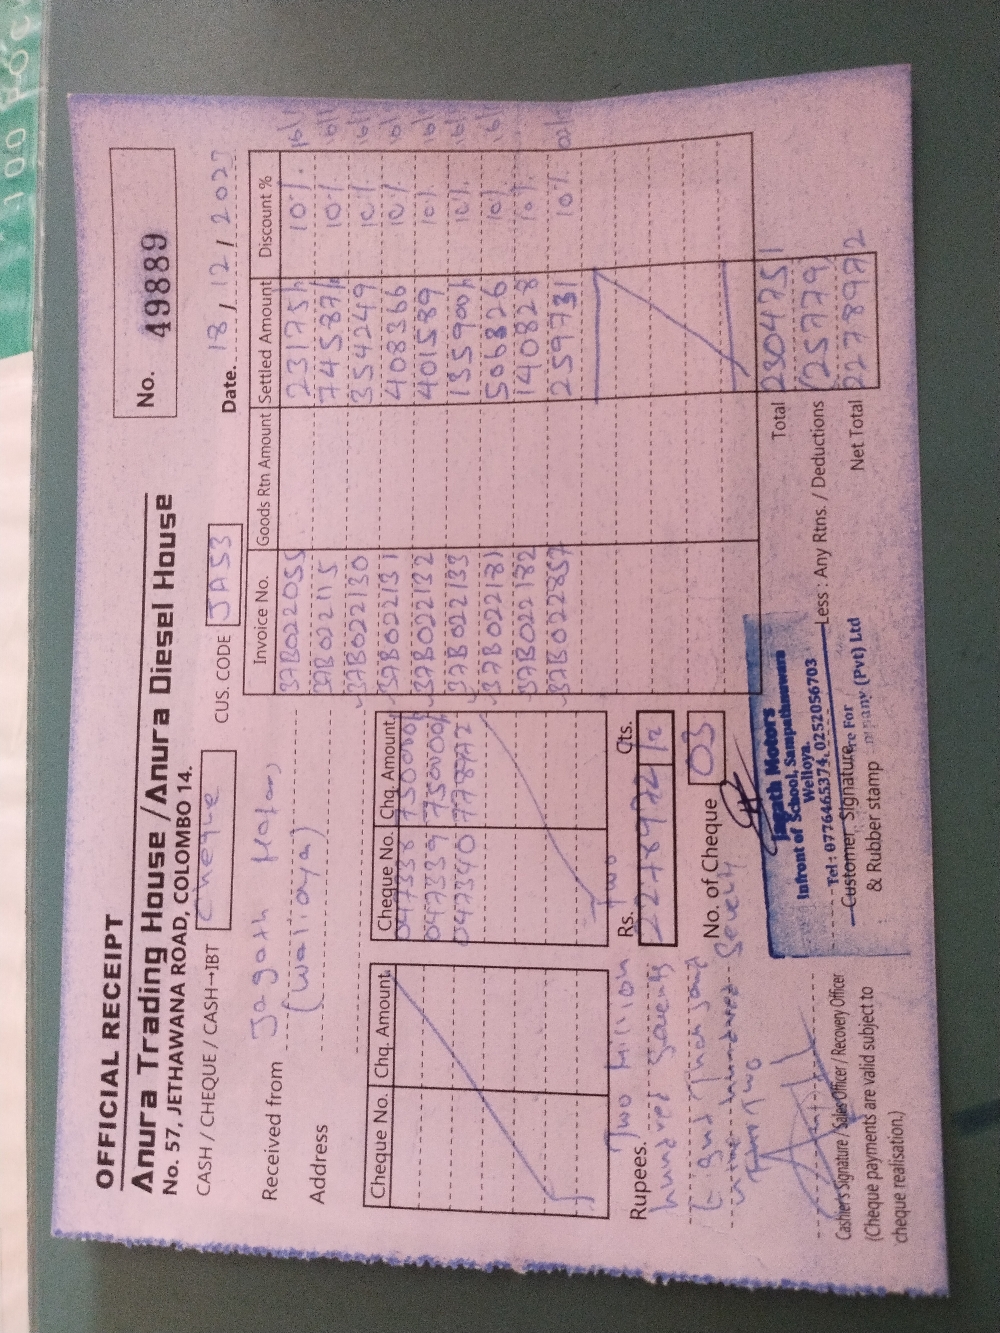 OFFICIAL RECEIPT
Anura Trading House / Anura Diesel House
No. 57, JETHAWANA ROAD, COLOMBO 14.
No. 49889
CASH / CHEQUE / CASH→IBT Cheque CUS. CODE JA53 Date. 18/12/202
Received from Jagath Motors
Address (Welioya)
Invoice No. Goods Rtn Amount Settled Amount Discount %
37B022055 23175 10%
37B022115 74587 10%
37B022130 354249 10%
37B022131 408366 10%
37B022132 401589 10%
37B022133 135900 10%
37B022181 506326 10%
37B022182 140828 10%
37B022857 259731 10%
Cheque No. Chq. Amount Cheque No. Chq. Amount
047338 750000
047339 750000
047340 778972
Total 2304751
Less : Any Rtns. / Deductions (25779)
Net Total 2278972
Rupees. Two Million Two
hundred Seventy
Eight Thousand
nine hundred Seventy
Two
Rs. Cts.
2278972
No. of Cheque 03
Jagath Motors
Infront of School, Sampathnuwara
Welioya.
Tel : 0776465374, 0252056703
Customer Signature
& Rubber stamp
For
(Pvt) Ltd
Cashier's Signature / Sales Officer / Recovery Officer
(Cheque payments are valid subject to
cheque realisation.)